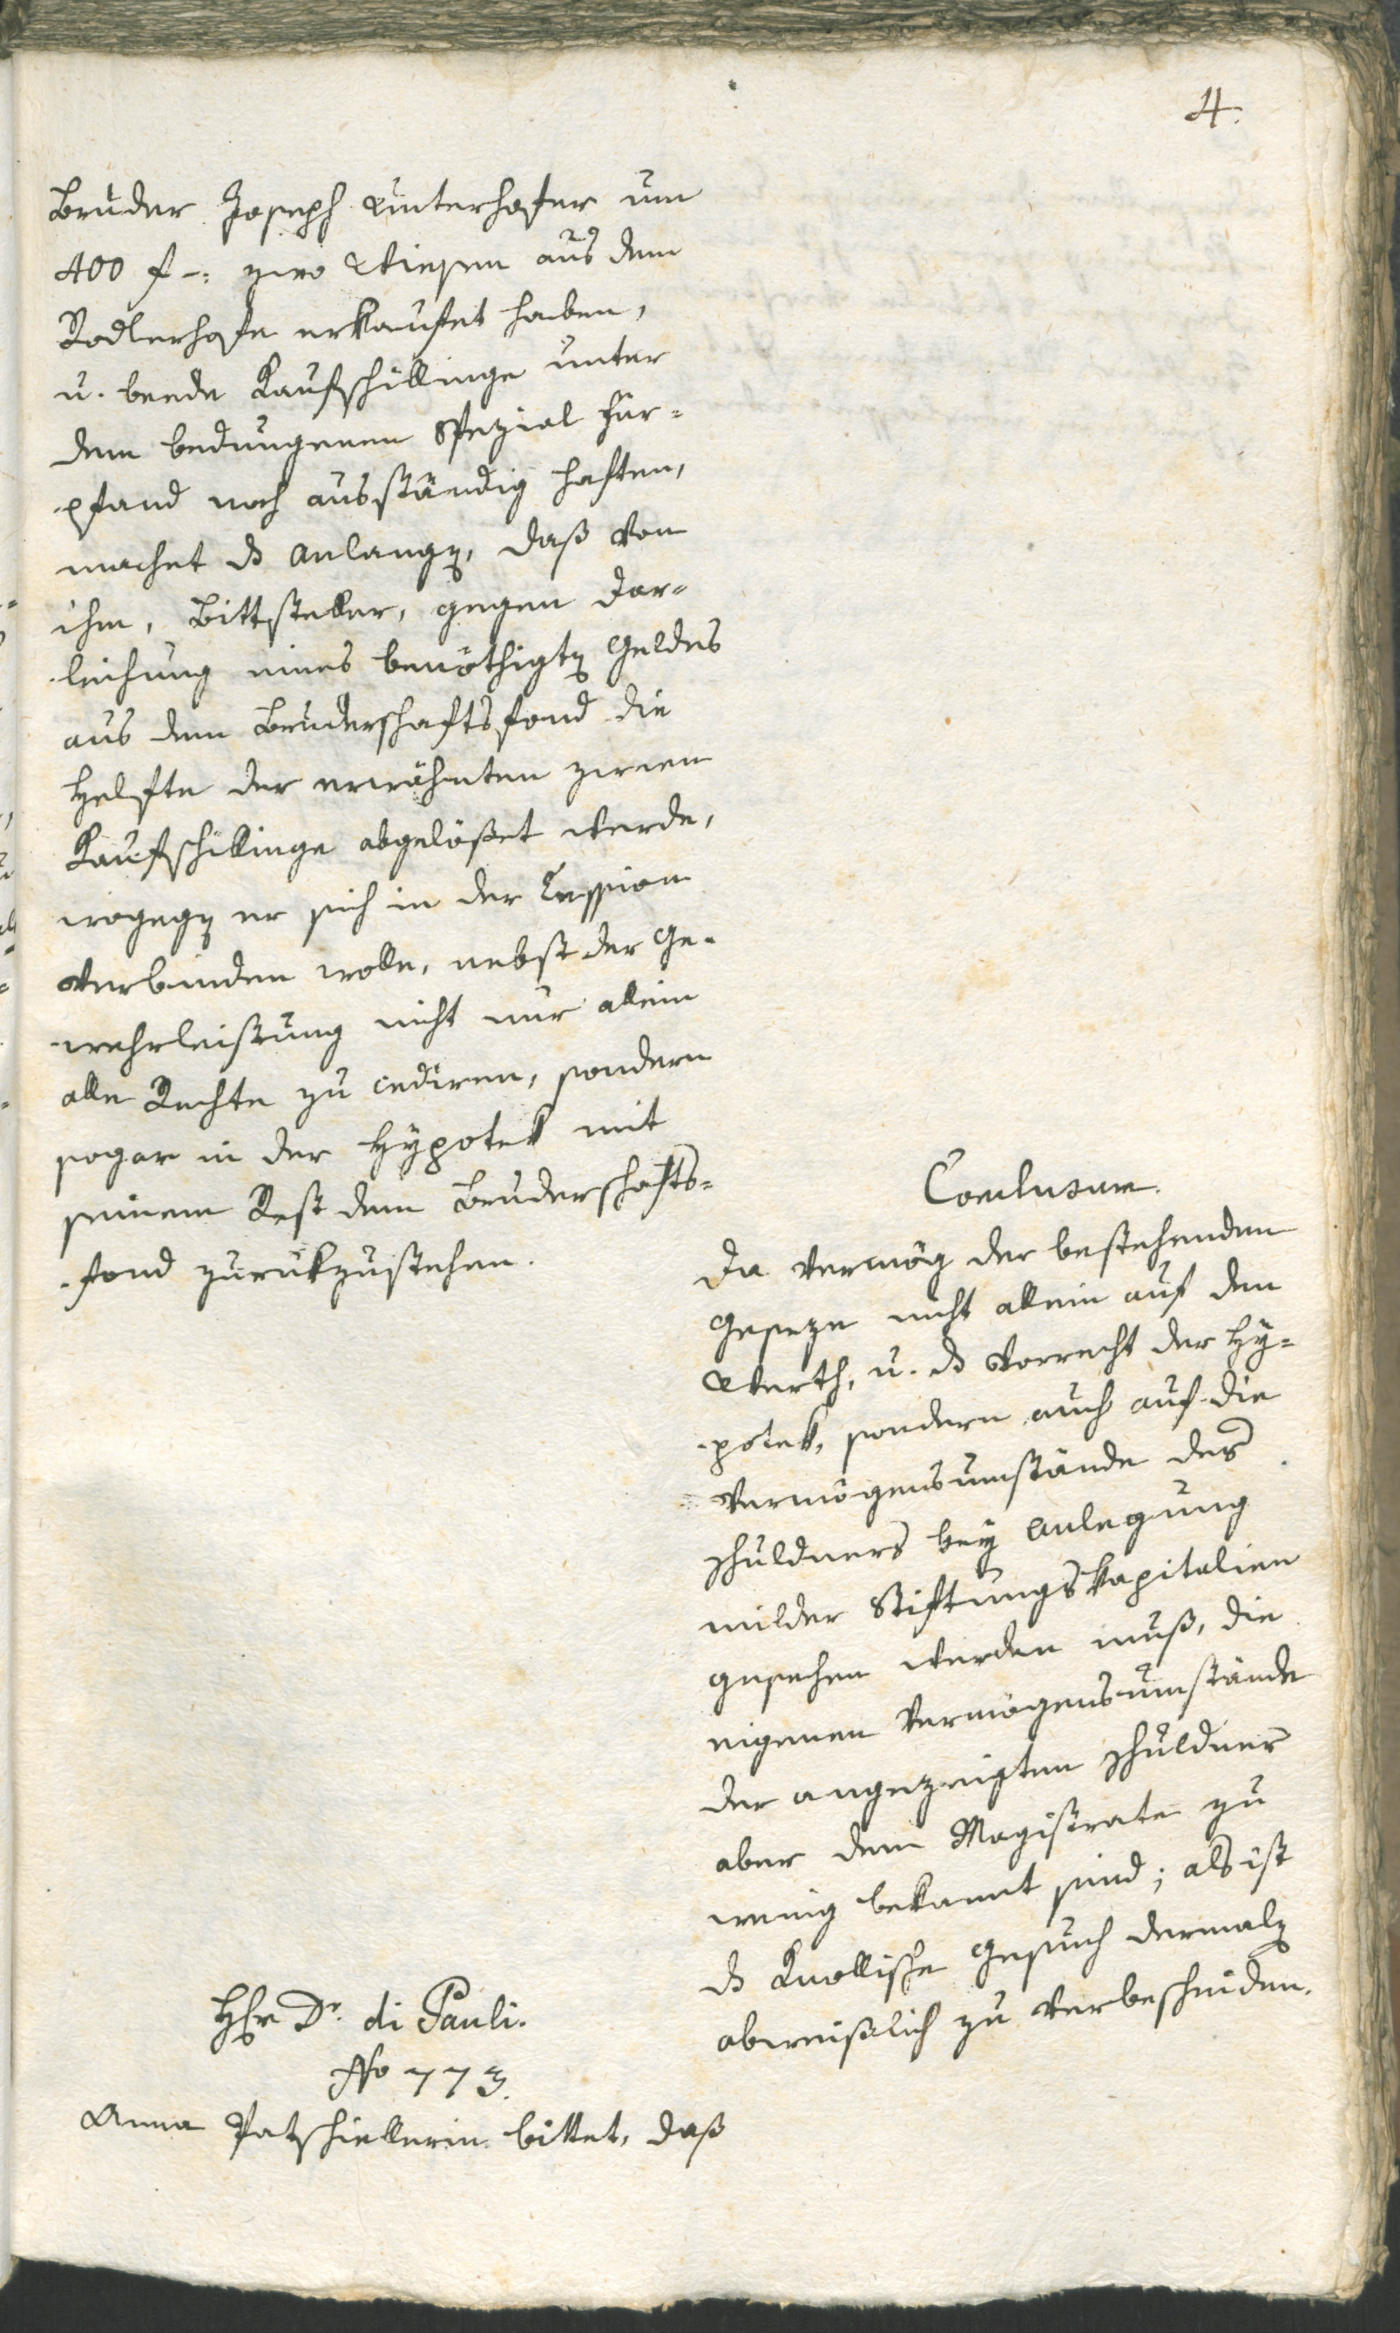 4.
Bruder Joseph Unterhofer um
400 f –: zwo Wiesen aus dem
Rodlerhofe erkaufet haben,
u. beede Kaufschillinge unter
dem bedungenen Spezial Für-
pfand noch ausständig haften,
machet ds Anlangen, daß von
ihm, Bittsteller, gegen Dar-
leihung eines benöthigten Geldes
aus dem Bruderschaftsfond die
Helfte der erwähnten zween
Kaufschillinge abgelößet werde,
wogegen er sich in der Cession
verbinden wolle, nebst der Ge-
wehrleistung nicht nur allein
alle Rechte zu cediren, sondern
sogar in der Hypotek mit
seinem Rest dem Bruderschafts-
fond zurükzustehen.
Conclusum.
Da vermög der bestehenden
Geseze nicht allein auf den
Werth, u. ds Vorrecht der Hy-
potek, sondern auch auf die
Vermögensumstände des
Schuldners bey Anlegung
milder Stiftungskapitalien
gesehen werden muß, die
eigenen Vermögensumstände
der angezeigten Schuldner
aber dem Magistrate zu
wenig bekannt sind; als ist
ds Knollische Gesuch dermalen
abweislich zu verbescheiden.
Hr Dr. di Pauli.
No 773.
Anna Patschiellerin bittet, daß